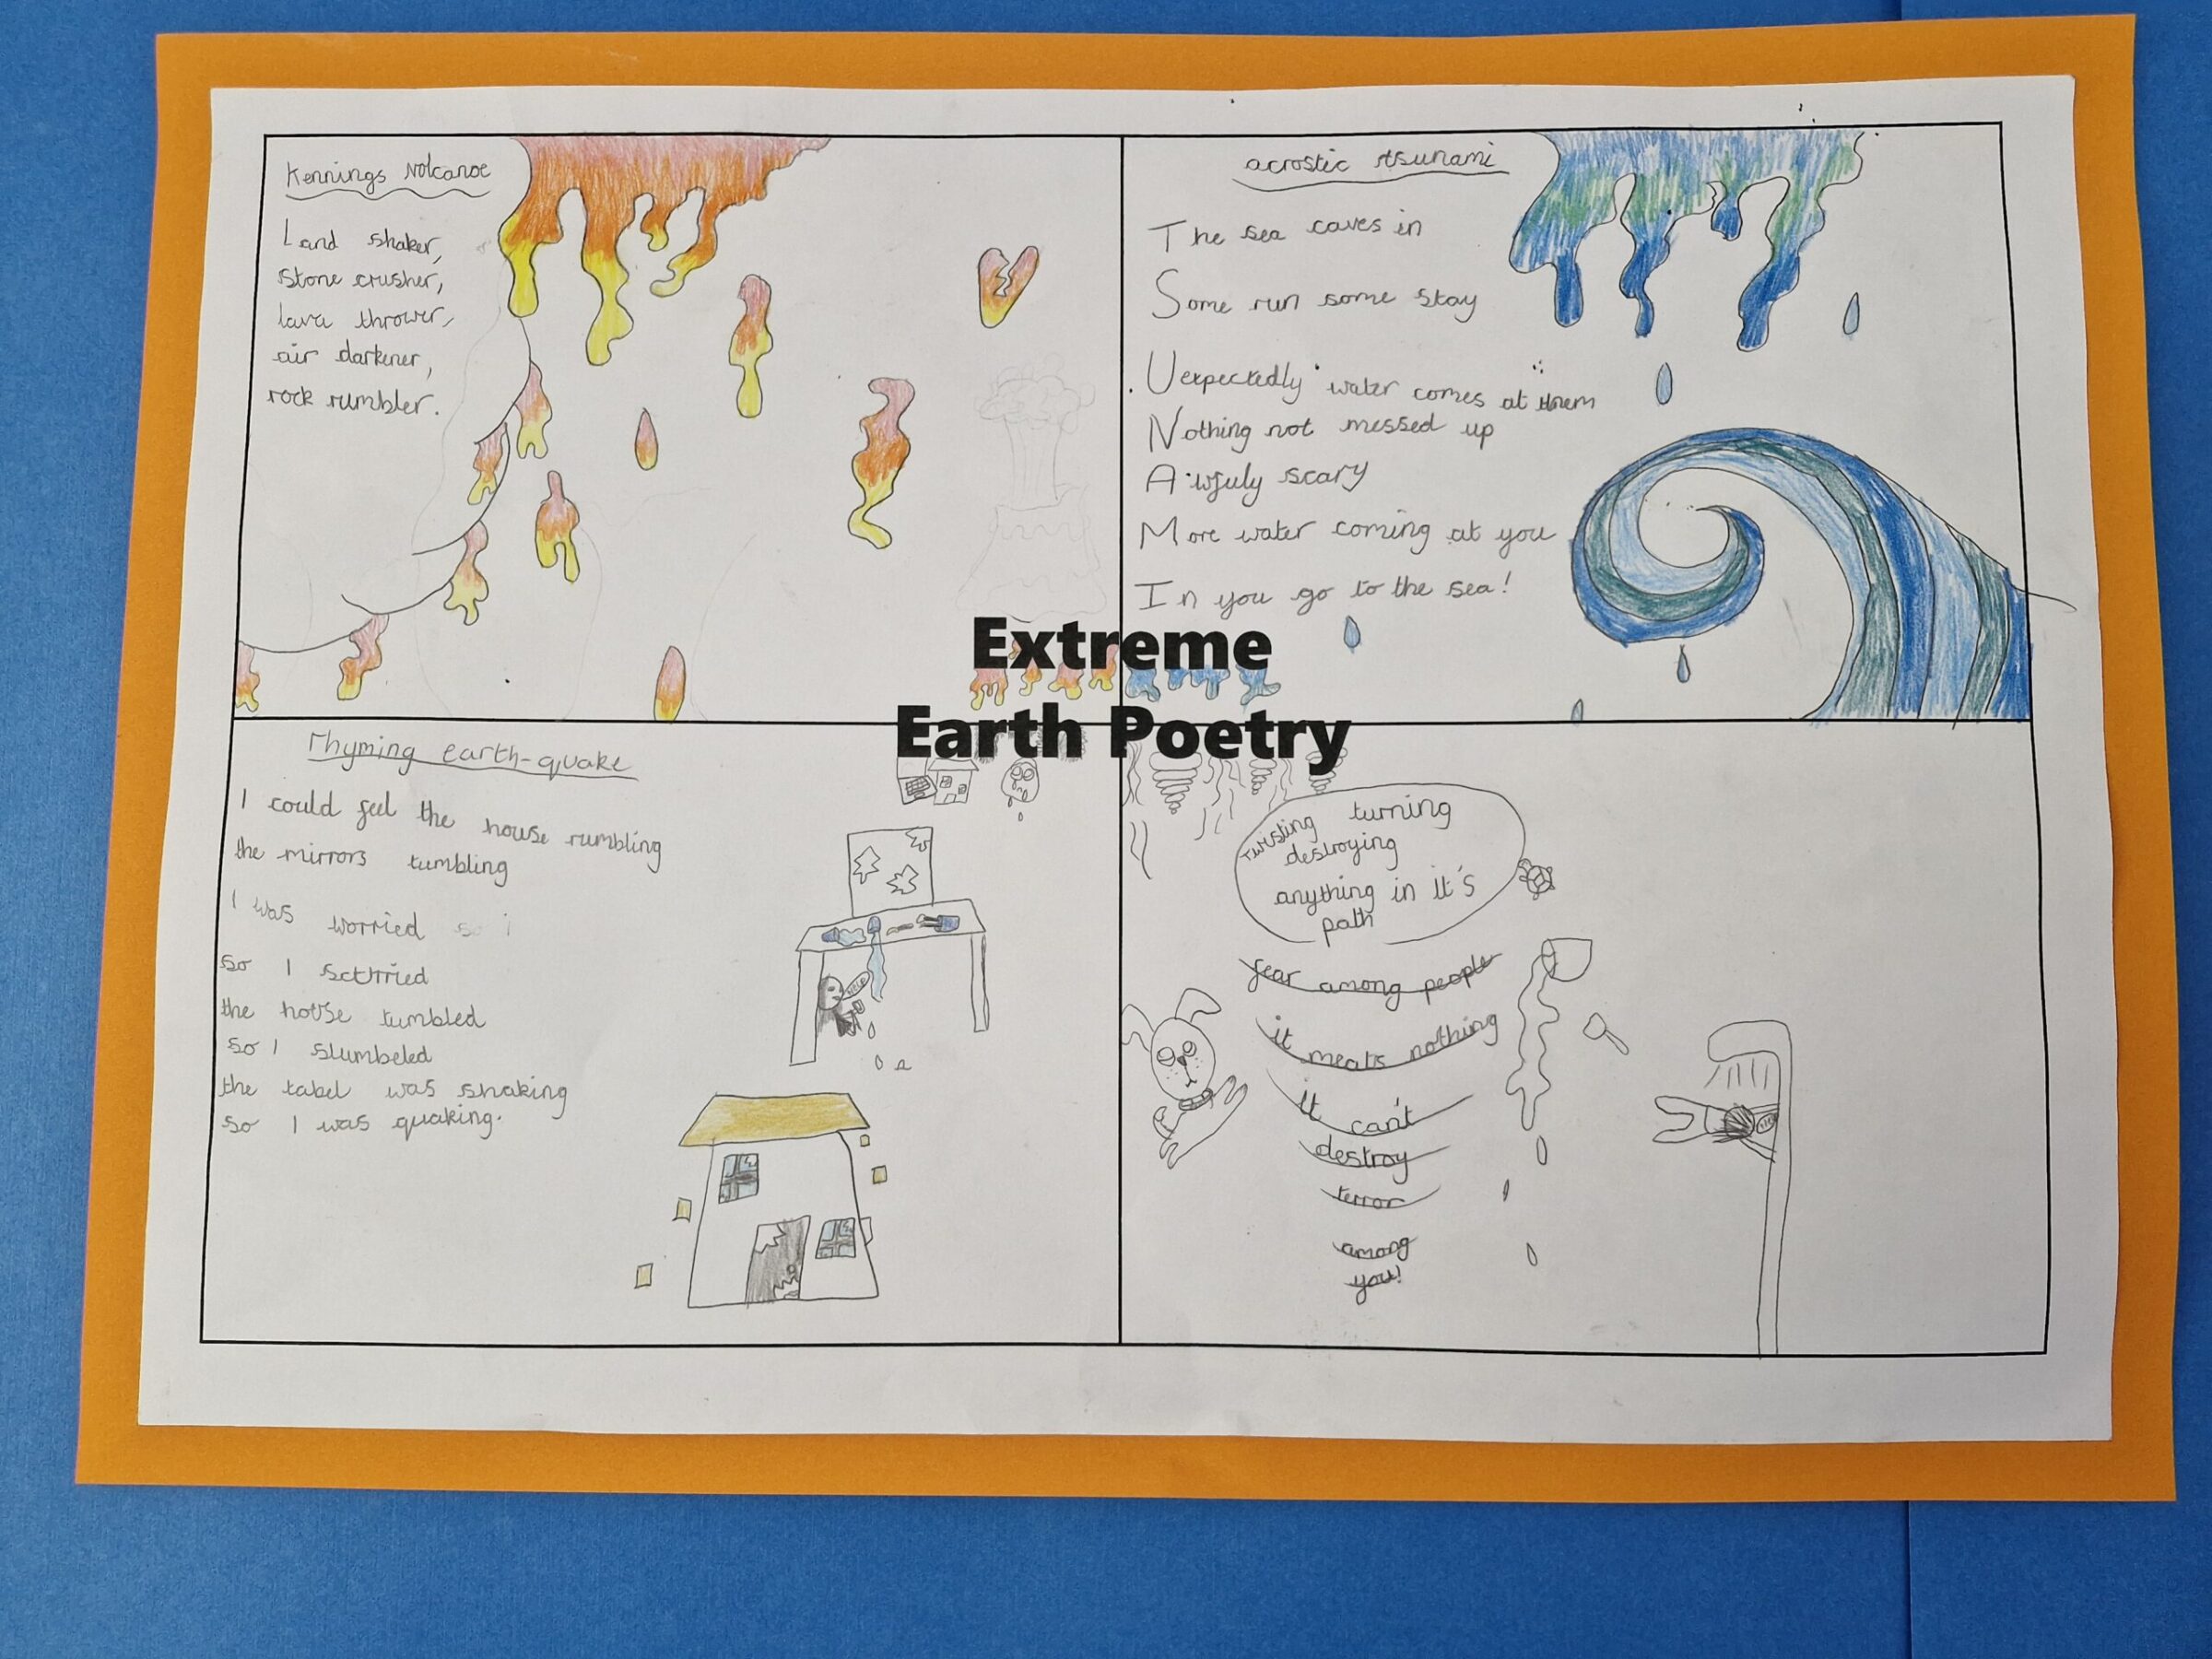 Kennings Volcanoe
Land shaker,
stone crusher,
lava thrower,
air darkener,
rock rumbler.
acrostic tsunami
The sea caves in
Some run some stay
Uexpectedly water comes at them
Nothing not messed up
Awfuly scary
More water coming at you
In you go to the sea!
Extreme
Earth Poetry
rhyming earth-quake
I could feel the house rumbling
the mirrors tumbling
I was worried so i
so I scurried
the house tumbled
so I slumbeled
the tabel was shaking
so I was quaking.
Twisting turning
destroying
anything in it's
path
fear among people
it means nothing
it can't
destroy
terror
among
you!